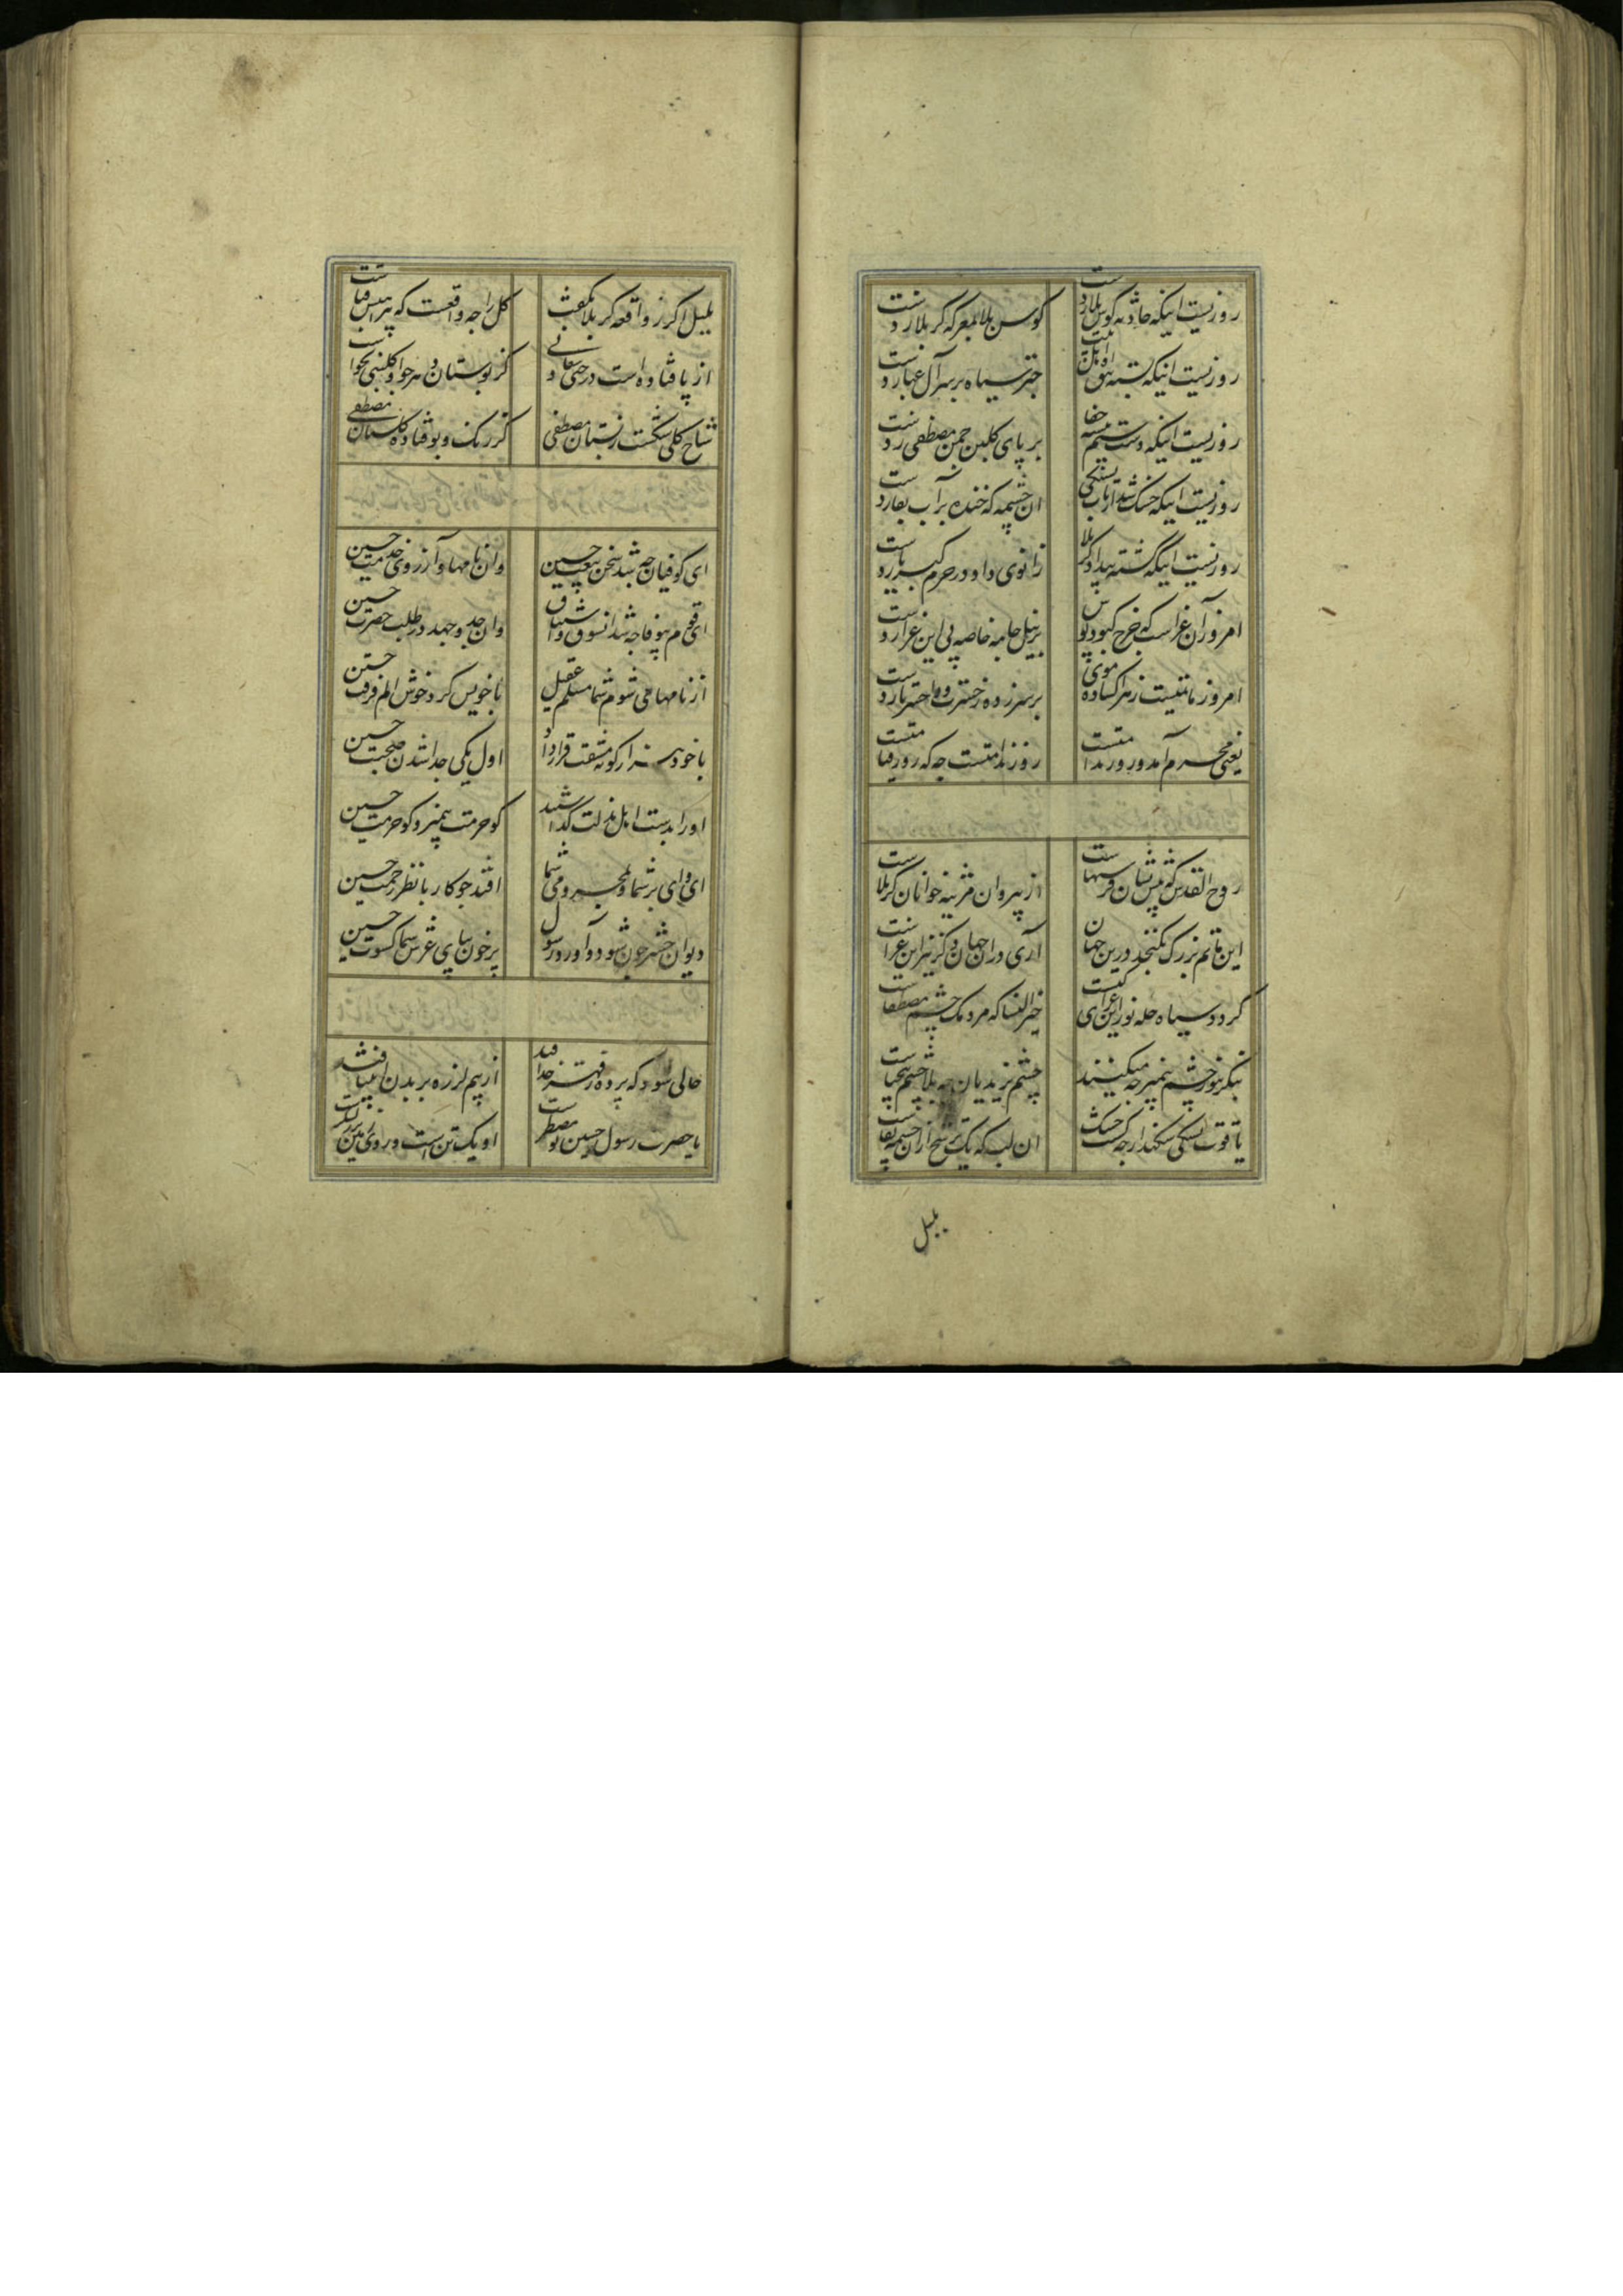 روزیست اینکه حادثه کوس بلا زدست کوس بلا بمعرکه کربلا زدست
روزیست اینکه تیشه چتر سیاه بر سر آل عبا زدست
روزیست اینکه دست ستیم تیشه جفا بر پای کلبن چمن مصطفی زدست
روزیست اینکه خشک شد از تاب تشنکی ان چشمه که خنده بر آب بقا زدست
روزیست اینکه کشته بیداد کربلا زانوی داد در حرم کبریا زدست
امروز آن عزاست که چرخ کبود پوش بر نیل جامه خاصه پی این عزا زدست
امروز ماتمیست که زهرا کشاده موی بر سر زده ز حسرت و وا حسرتا زدست
یعنی محرم آمد و روز ندامتست روز ندامتست چه که روز قیامتست
روح القدس که پیش لسان فرشتهاست از پیروان مرثیه خوانان کربلاست
این ماتم بزرک نکنجد درین جهان آری در ان جهان دکر نیز این عزاست
کردد سیاه حله نور این عزای کیست خیر النسا که مردمک چشم مصطفاست
بنکر بنور چشم پیمبر چه میکنند چشم یزیدیان چه بلا چشم بیحیاست
یاقوت تشنکی شکند از چه کشت خشک ان لب که یک ترشح از ان چشمه بقاست
بلبل
بلبل اکر ز واقعه کربلا نکفت کل را چه واقعست که پیراهنش قباست
از پا فتاده است درختی سعادتی کز بوستان دهر چو او کلبنی نخواست
شاخ کلی شکست ز بستان مصطفی کز رنک و بو فتاد کلستان مصطفی
ای کوفیان چه شد سخن بیعت حسین وان نامها و آرزوی خدمت حسین
ای قوم بیوفا چه شد آن شوق و اشتیاق وان جد و جهد در طلب حضرت حسین
از نامهای شوم شما مسلم عقیل با خویش کرد خوش الم فرقت حسین
با خود هزار کونه مشقت قرار داد اول یکی جدا شدن صحبت حسین
او را بدست اهل مذلت کذاشتید کو حرمت پیمبر و کو حرمت حسین
ای وای بر شما و بمحرومی شما افتد چو کار با نظر رحمت حسین
دیوان حشر چون شود و آورد رسول پر خون بپای عرش سما کسوت حسین
حالی شود که پرده ز قهر خدا فتد از بیم لرزه بر بدن انبیا فتد
یا حضرت رسول حسین تو مضطرست او یک تن است و روی زمین پر ز لشکرست